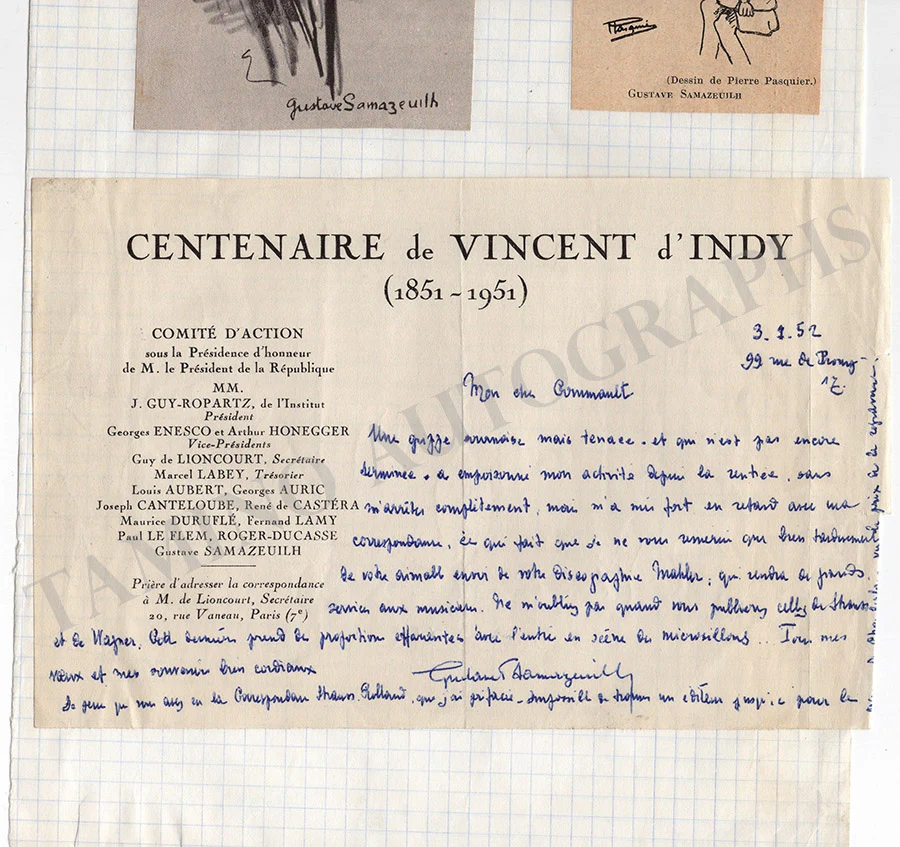 Gustave Samazeuilh
Pasquier
(Dessin de Pierre Pasquier.)
GUSTAVE SAMAZEUILH
CENTENAIRE de VINCENT d'INDY
(1851-1951)
COMITÉ D'ACTION
sous la Présidence d'honneur
de M. le Président de la République
MM.
J. GUY-ROPARTZ, de l'Institut
Président
Georges ENESCO et Arthur HONEGGER
Vice-Présidents
Guy de LIONCOURT, Secrétaire
Marcel LABEY, Trésorier
Louis AUBERT, Georges AURIC
Joseph CANTELOUBE, René de CASTÉRA
Maurice DURUFLÉ, Fernand LAMY
Paul LE FLEM, ROGER-DUCASSE
Gustave SAMAZEUILH
Prière d'adresser la correspondance
à M. de Lioncourt, Secrétaire
20, rue Vaneau, Paris (7e)
3.1.52
99 rue de Prony
17.
Mon cher Commault
Une grippe sournoise mais tenace. et qui n'est pas encore
terminée. a empoisonné mon activité depuis la rentrée, sans
m'arrêter complètement, mais m'a mis fort en retard avec ma
correspondance, ce qui fait que je ne vous remercie que bien tardivement
de votre aimable envoi de votre Discographie Mahler, qui rendra de grands
services aux musiciens. Ne m'oubliez pas quand vous publierez celles de Strauss
et de Wagner. Cette dernière prend des proportions effarantes avec l'entrée en scène des microsillons... Tous mes
vœux et mes souvenirs bien cordiaux
Gustave Samazeuilh
Je pense que vous avez eu la Correspondance Strauss. Rolland, que j'ai préfacée. Impossible de trouver un éditeur jusqu'ici pour la
prix de la
TAMINO AUTOGRAPHS